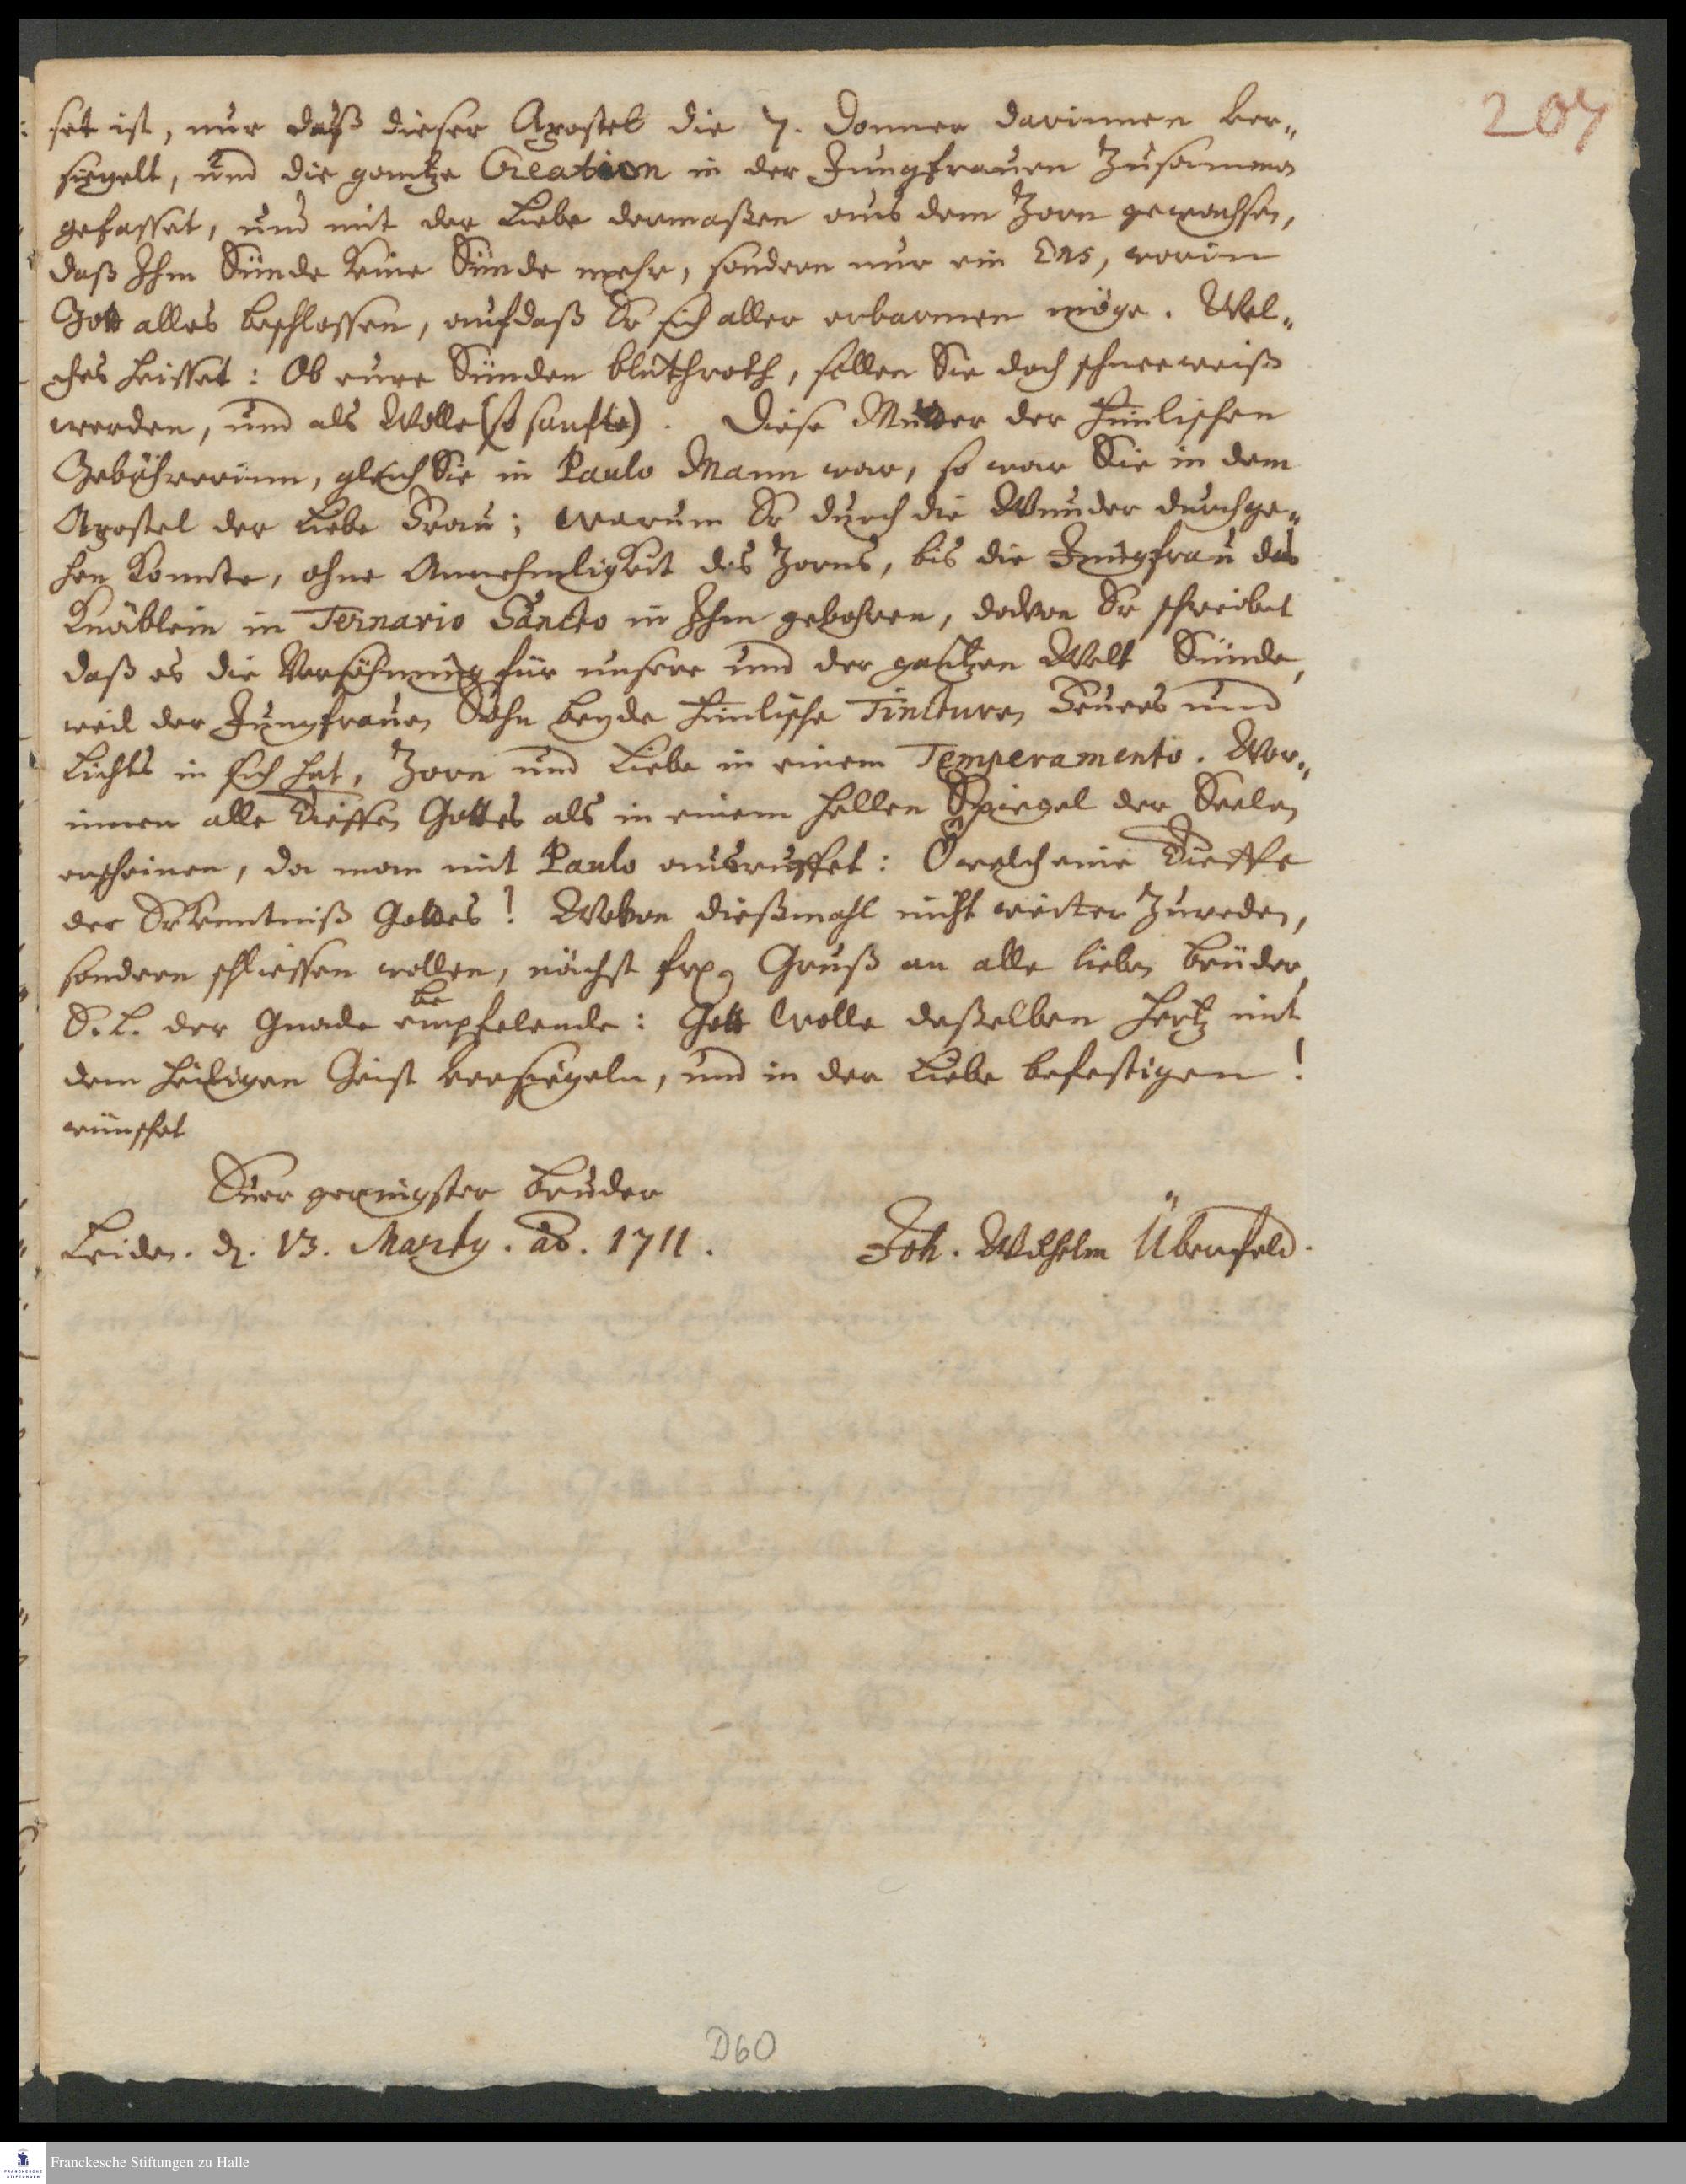 207
set ist, nur daß dieser Apostel die 7. Donner darinnen ver„
siegelt, und die gantze Creation in der Jungfrauen Zusammen
gefasset, und mit der Liebe dermaßen aus dem Zorn gewachsen,
daß Ihm Sünde keine Sünde mehr, sondern nur ein Ens, worin
Gott alles beschlossen, aufdaß Er sich aller erbarmen möge. Wel„
ches heisset: Ob eure Sünden bluthroth, sollen Sie doch schneeweiß
werden, und als Wolle (so sanfte). Diese Mutter der himlischen
Gebährerinn, gleich Sie in Paulo Mann war, so war Sie in dem
Apostel der Liebe Frau; warum Er durch die Wunder durchge„
hen konnte, ohne Annehmligkeit des Zorns, bis die Jungfrau das
Knäblein in Ternario Sancto in Ihm gebohren, davon Er schreibet
daß es die Versöhnung für unsere und der gantzen Welt Sünde,
weil der Jungfrauen Sohn beyde himlische Tincturen Feuers und
Lichts in sich hat, Zorn und Liebe in einem Temperamento. Wor„
innen alle Tieffen Gottes als in einem hellen Spiegel der Seelen
erscheinen, da man mit Paulo ausruffet: O welch eine Tieffe
der Erkenntniß Gottes! Wovon dießmahl nicht weiter Zureden,
sondern schliessen wollen, nächst Gruß an alle lieben Brüder,
E. L. der Gnade empfelende: Gott wolle deßelben Hertz mit
be
dem heiligen Geist versiegeln, und in der Liebe befestigen!
wünschet
Euer geringster Bruder
Leiden. d. 13. Marty. ao. 1711. Joh. Wilhelm Überfeld.
D60
Franckesche Stiftungen zu Halle
FRANCKESCHE
STIFTUNGEN